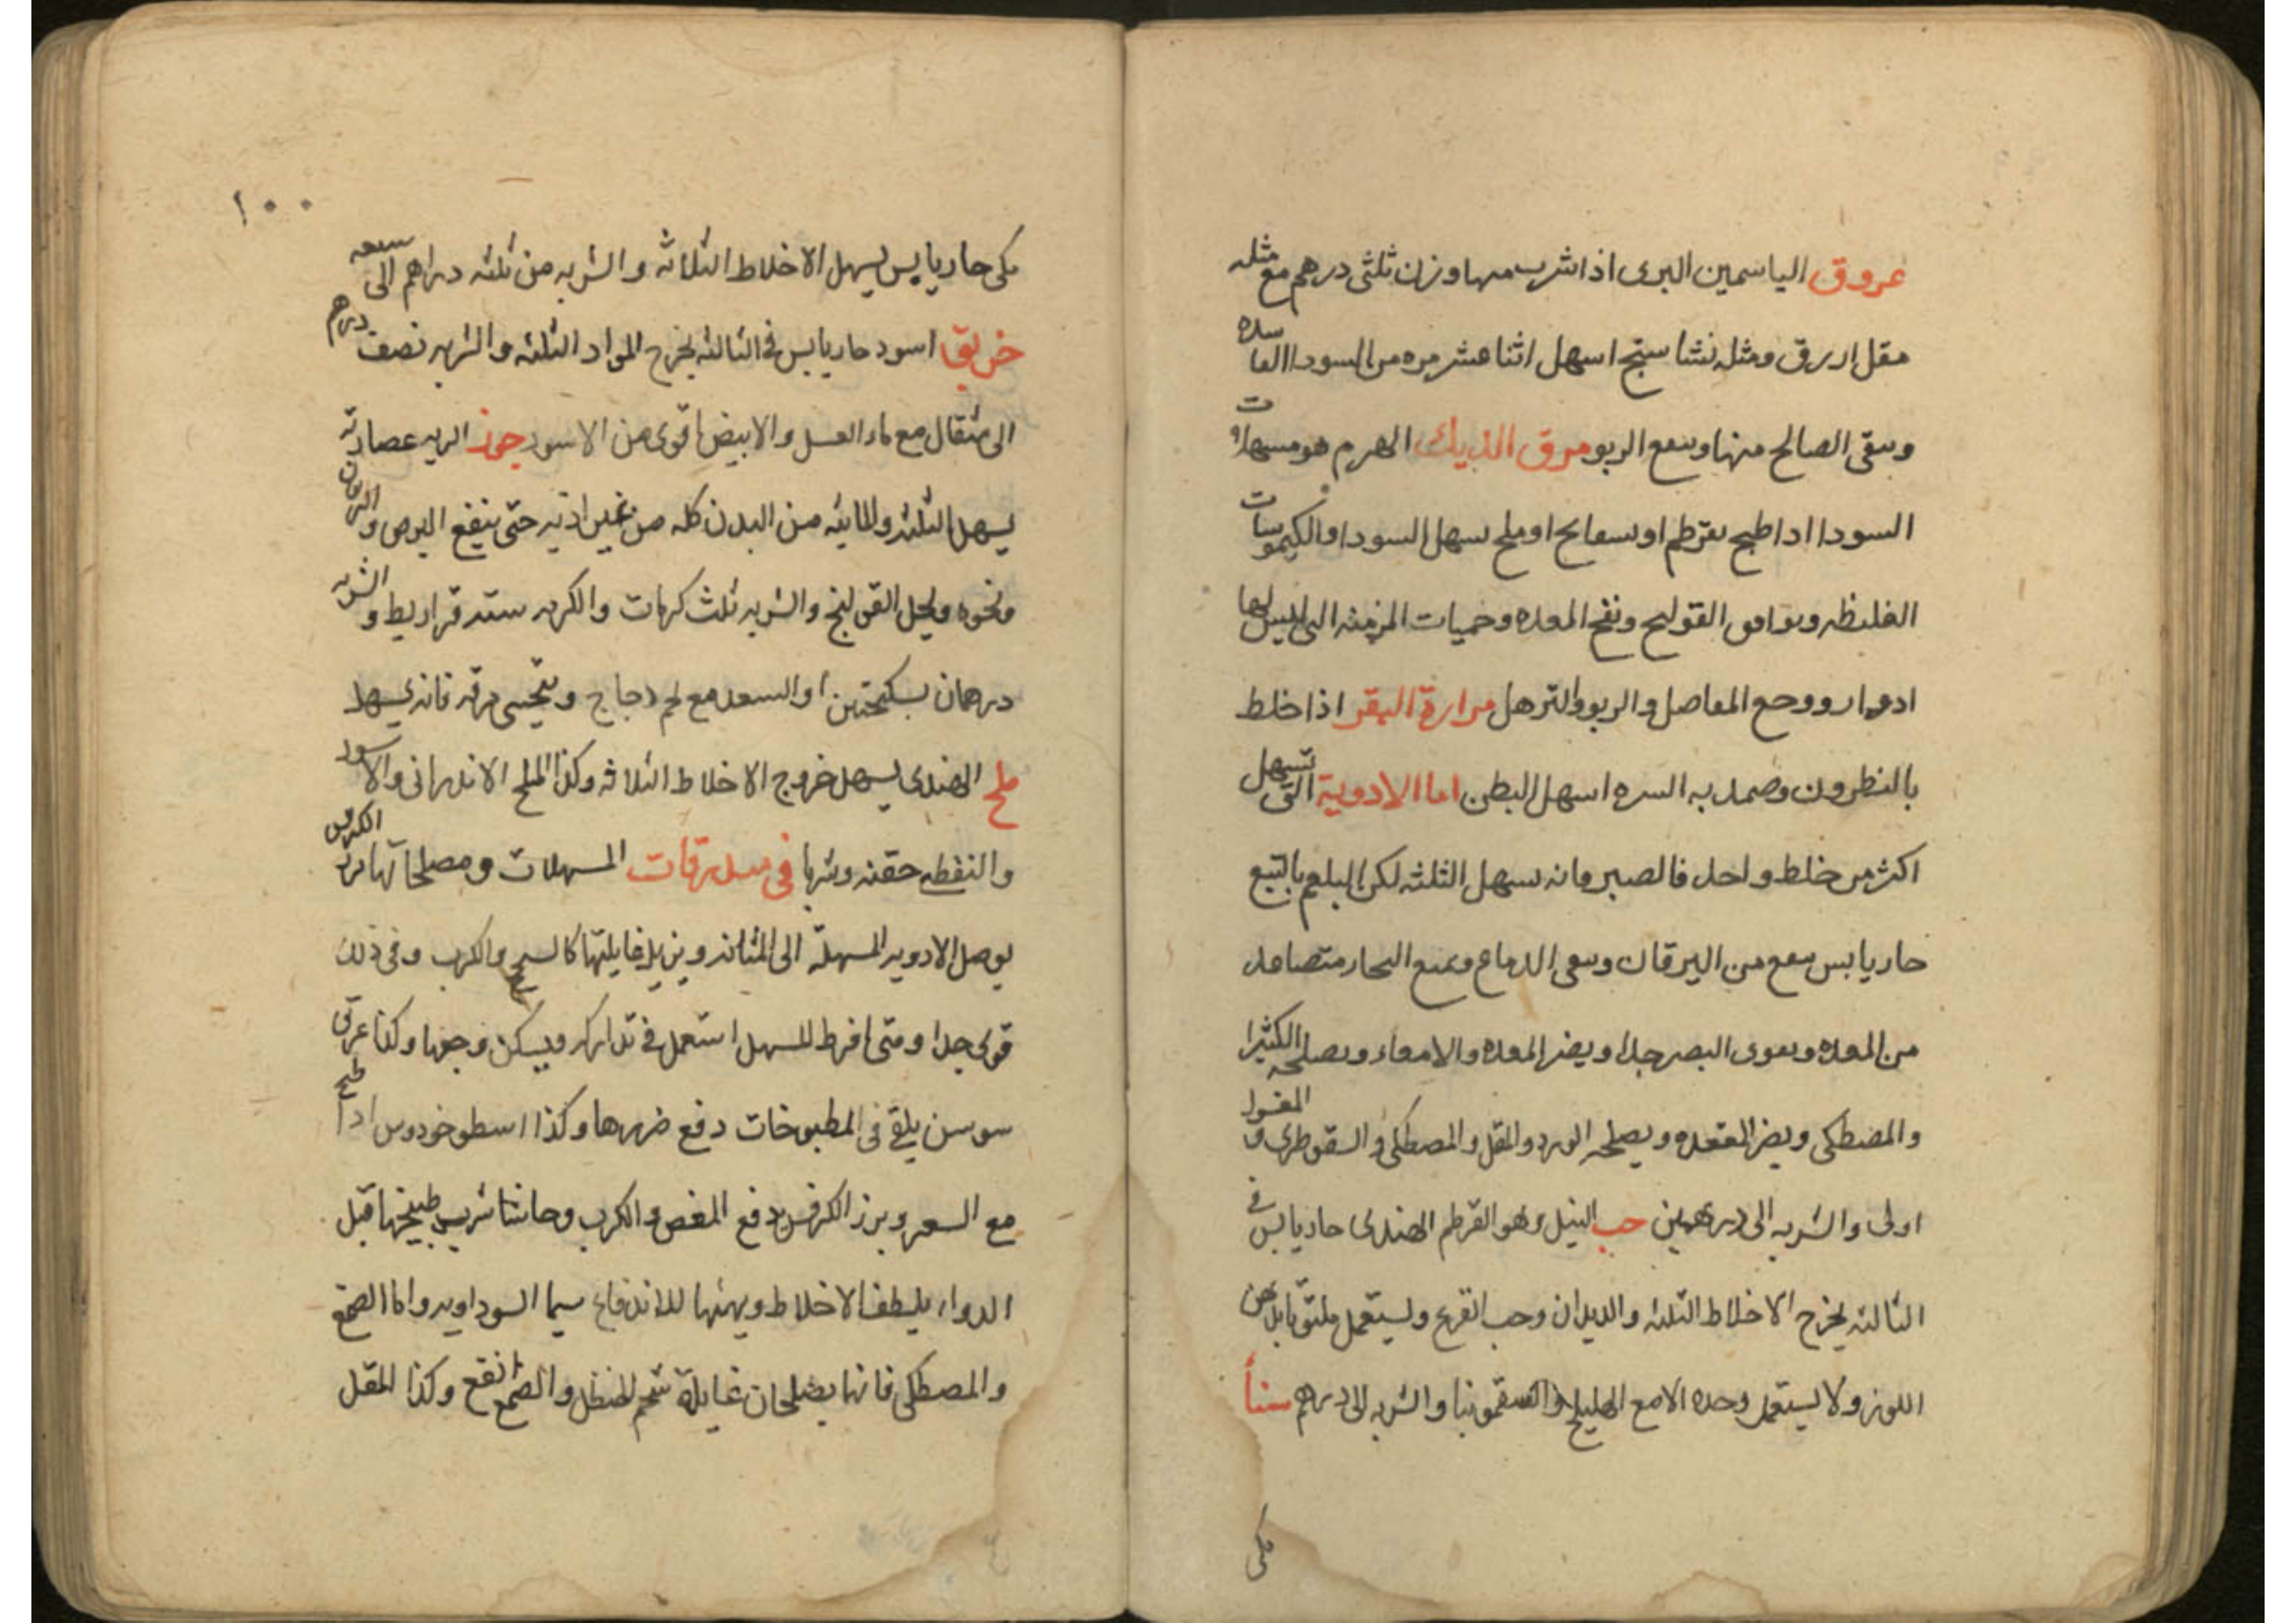 عروق الياسمين البرى اذا شرب منها وزن ثلثى درهم مع مثله
مقل ازرق ومثله نشاستج اسهل اثنا عشر مره من السودا
وسقى الصالح منها وسفع الربو مرق الديك الهرم هو مسهلات
السودا اذا طبخ بقرطم او بسفايج او ملح يسهل السودا والكيموسات
الغليظه ويوافق القولنج ونفخ المعده وحميات المزمنه التى ليس لها
ادوار ووجع المفاصل والربو والترهل مرارة البقر اذا خلط
بالنطرون وضمد به السره اسهل البطن اما الادوية التى تسهل
اكثر من خلط واحد فالصبر فانه يسهل الثلثه لكن البلغم بالتبع
حار يابس ينفع من اليرقان وينقى الدماغ ويمنع البخار متصاعد
من المعده ويقوى البصر جدا ويضر المعده والامعاء ويصلحه الكثيرا
والمصطكى ويضر المقعده ويصلحه الورد والمقل والمصطكى والسقوطرى و المغسول
اولى والشربه الى درهمين حب النيل وهو القرطم الهندى حار يابس فى
الثالثه يخرج الاخلاط الثلثه والديدان وحب القرع ويستعمل ملتوتا بدهن
اللوز ولا يستعمل وحده الا مع الهليلج والسقمونيا والشربه الى درهم سنا
مكى
١٠٠
مكى حار يابس يسهل الاخلاط الثلاثه والشربه من ثلثه دراهم الى سبعه
دراهم
خربق اسود حار يابس فى الثالثه يخرج المواد الثلثه والشربه نصف
الى مثقال مع ماء العسل والابيض اقوى من الاسود جوز الريه عصارته
يسهل الثلثه والمايئه من البدن كله من غير اذيه حتى ينفع البرص و اليرقان
ونحوه ويحل القولنج والشربه ثلث كرمات والكرمه سته قراريط و الشربه
درهمان بسكنجبين او السعد مع لحم دجاج ويتحسى مرقه فانه يسهل
ملح الهندى يسهل خروج الاخلاط الثلاثه وكذا الملح الاندرانى والاسود
والنفطى حقنه وشربا فى مبدرقات المسهلات ومصلحاتها بزر الكرفس
يوصل الادويه المسهله الى المثانه ويزيل غايلتها كالسحج والكرب وفى ذلك
قوى جدا ومتى افرط المسهل استعمل فى تداركه ويسكن وجعها وكذا عرق
سوسن يلقى فى المطبوخات دفع ضررها وكذا اسطوخودوس اذا طبخ
مع السعتر وبزر الكرفس يدفع المغص والكرب وحاشا شرب طبيخها قبل
الدواء يلطف الاخلاط ويهيئها للاندفاع سيما السوداويه واما الصمغ
والمصطكى فانها يصلحان غايلة شحم الحنظل والصمغ انفع وكذا المقل